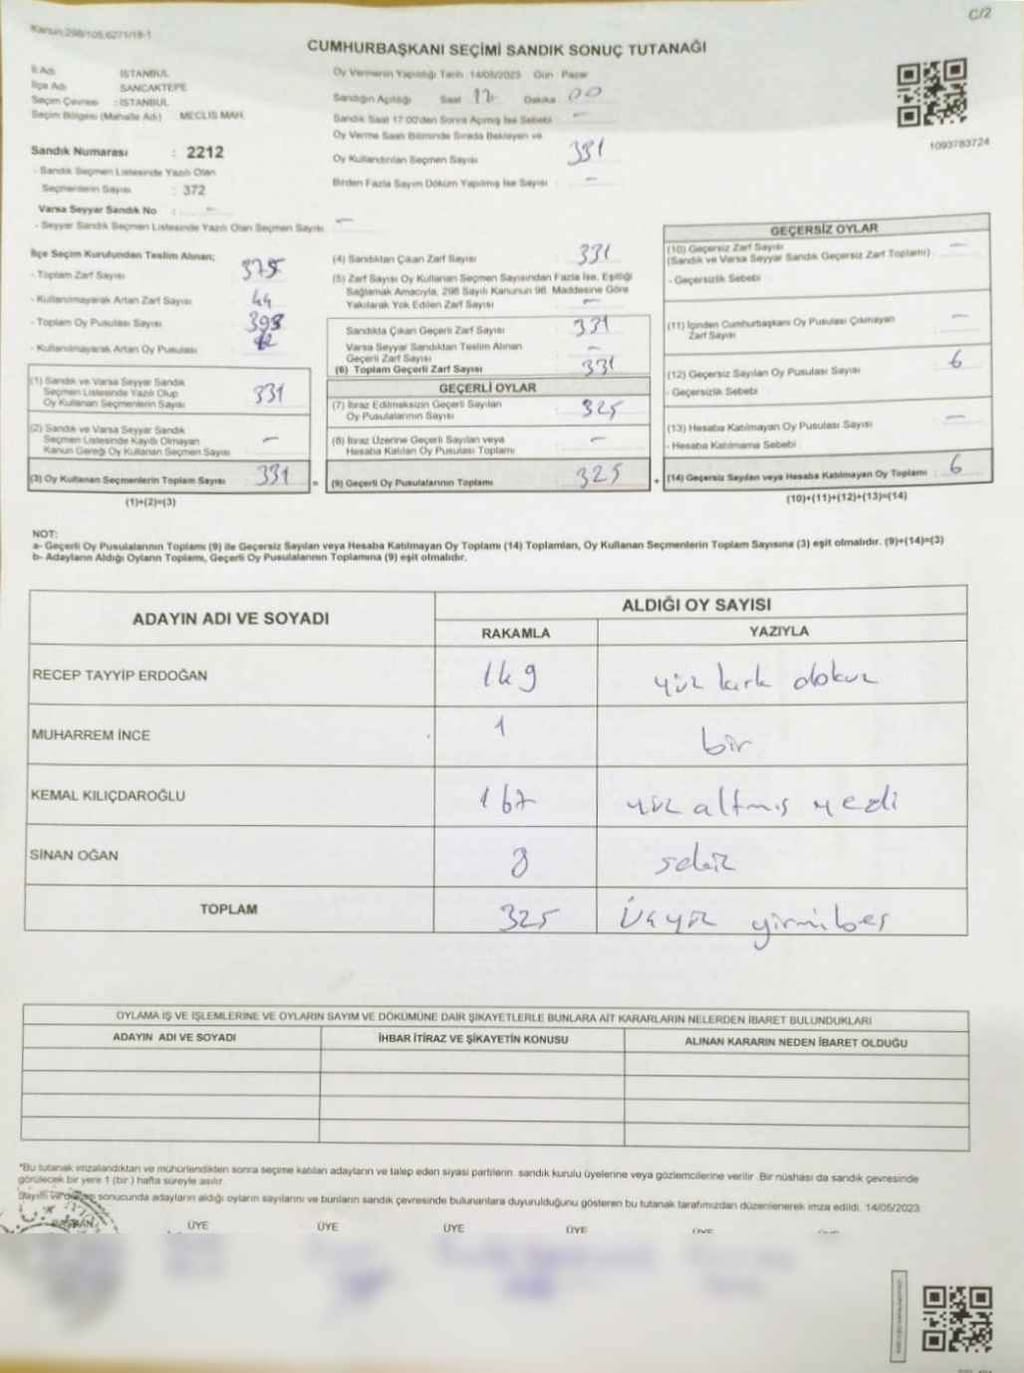 C/2
Kanun:298/105,6271/18-1
CUMHURBAŞKANI SEÇİMİ SANDIK SONUÇ TUTANAĞI
İli Adı : İSTANBUL
İlçe Adı : SANCAKTEPE
Seçim Çevresi : İSTANBUL
Seçim Bölgesi (Mahalle Adı) : MECLİS MAH.
Sandık Numarası : 2212
- Sandık Seçmen Listesinde Yazılı Olan
Seçmenlerin Sayısı : 372
Varsa Seyyar Sandık No : -
- Seyyar Sandık Seçmen Listesinde Yazılı Olan Seçmen Sayısı : -
Oy Vermenin Yapıldığı Tarih : 14/05/2023 Gün : Pazar
Sandığın Açıldığı Saat 17 Dakika 00
Sandık Saat 17:00'den Sonra Açılmış İse Sebebi -
Oy Verme Saati Bitiminde Sırada Bekleyen ve
Oy Kullandırılan Seçmen Sayısı 331
Birden Fazla Sayım Döküm Yapılmış İse Sayısı -
1093783724
İlçe Seçim Kurulundan Teslim Alınan;
- Toplam Zarf Sayısı 375
- Kullanılmayarak Artan Zarf Sayısı 44
- Toplam Oy Pusulası Sayısı 398
- Kullanılmayarak Artan Oy Pusulası
(1) Sandık ve Varsa Seyyar Sandık
Seçmen Listesinde Yazılı Olup
Oy Kullanan Seçmenlerin Sayısı 331
(2) Sandık ve Varsa Seyyar Sandık
Seçmen Listesinde Kayıtlı Olmayan
Kanun Gereği Oy Kullanan Seçmen Sayısı -
(3) Oy Kullanan Seçmenlerin Toplam Sayısı 331
(1)+(2)=(3)
(4) Sandıktan Çıkan Zarf Sayısı 331
(5) Zarf Sayısı Oy Kullanan Seçmen Sayısından Fazla İse, Eşitliği
Sağlamak Amacıyla, 298 Sayılı Kanunun 98. Maddesine Göre
Yakılarak Yok Edilen Zarf Sayısı -
Sandıkta Çıkan Geçerli Zarf Sayısı 331
Varsa Seyyar Sandıktan Teslim Alınan
Geçerli Zarf Sayısı -
(6) Toplam Geçerli Zarf Sayısı 331
GEÇERLİ OYLAR
(7) İtiraz Edilmeksizin Geçerli Sayılan
Oy Pusulalarının Sayısı 325
(8) İtiraz Üzerine Geçerli Sayılan veya
Hesaba Katılan Oy Pusulası Toplamı -
= (9) Geçerli Oy Pusulalarının Toplamı 325
GEÇERSİZ OYLAR
(10) Geçersiz Zarf Sayısı
(Sandık ve Varsa Seyyar Sandık Geçersiz Zarf Toplamı) -
- Geçersizlik Sebebi
(11) İçinden Cumhurbaşkanı Oy Pusulası Çıkmayan
Zarf Sayısı -
(12) Geçersiz Sayılan Oy Pusulası Sayısı 6
- Geçersizlik Sebebi
(13) Hesaba Katılmayan Oy Pusulası Sayısı -
- Hesaba Katılmama Sebebi
+ (14) Geçersiz Sayılan veya Hesaba Katılmayan Oy Toplamı : 6
(10)+(11)+(12)+(13)=(14)
NOT:
a- Geçerli Oy Pusulalarının Toplamı (9) ile Geçersiz Sayılan veya Hesaba Katılmayan Oy Toplamı (14) Toplamları, Oy Kullanan Seçmenlerin Toplam Sayısına (3) eşit olmalıdır. (9)+(14)=(3)
b- Adayların Aldığı Oyların Toplamı, Geçerli Oy Pusulalarının Toplamına (9) eşit olmalıdır.
ADAYIN ADI VE SOYADI
ALDIĞI OY SAYISI
RAKAMLA YAZIYLA
RECEP TAYYİP ERDOĞAN 149 yüz kırk dokuz
MUHARREM İNCE 1 bir
KEMAL KILIÇDAROĞLU 167 yüz altmış yedi
SİNAN OĞAN 8 sekiz
TOPLAM 325 Üçyüz yirmibeş
OYLAMA İŞ VE İŞLEMLERİNE VE OYLARIN SAYIM VE DÖKÜMÜNE DAİR ŞİKAYETLERLE BUNLARA AİT KARARLARIN NELERDEN İBARET BULUNDUKLARI
ADAYIN ADI VE SOYADI İHBAR İTİRAZ VE ŞİKAYETİN KONUSU ALINAN KARARIN NEDEN İBARET OLDUĞU
*Bu tutanak imzalandıktan ve mühürlendikten sonra seçime katılan adayların ve talep eden siyasi partilerin, sandık kurulu üyelerine veya gözlemcilerine verilir. Bir nüshası da sandık çevresinde
görülecek bir yere 1 (bir) hafta süreyle asılır.
Sayım ve döküm sonucunda adayların aldığı oyların sayılarını ve bunların sandık çevresinde bulunanlara duyurulduğunu gösteren bu tutanak tarafımızdan düzenlenerek imza edildi. 14/05/2023
BAŞKAN ÜYE ÜYE ÜYE ÜYE ÜYE